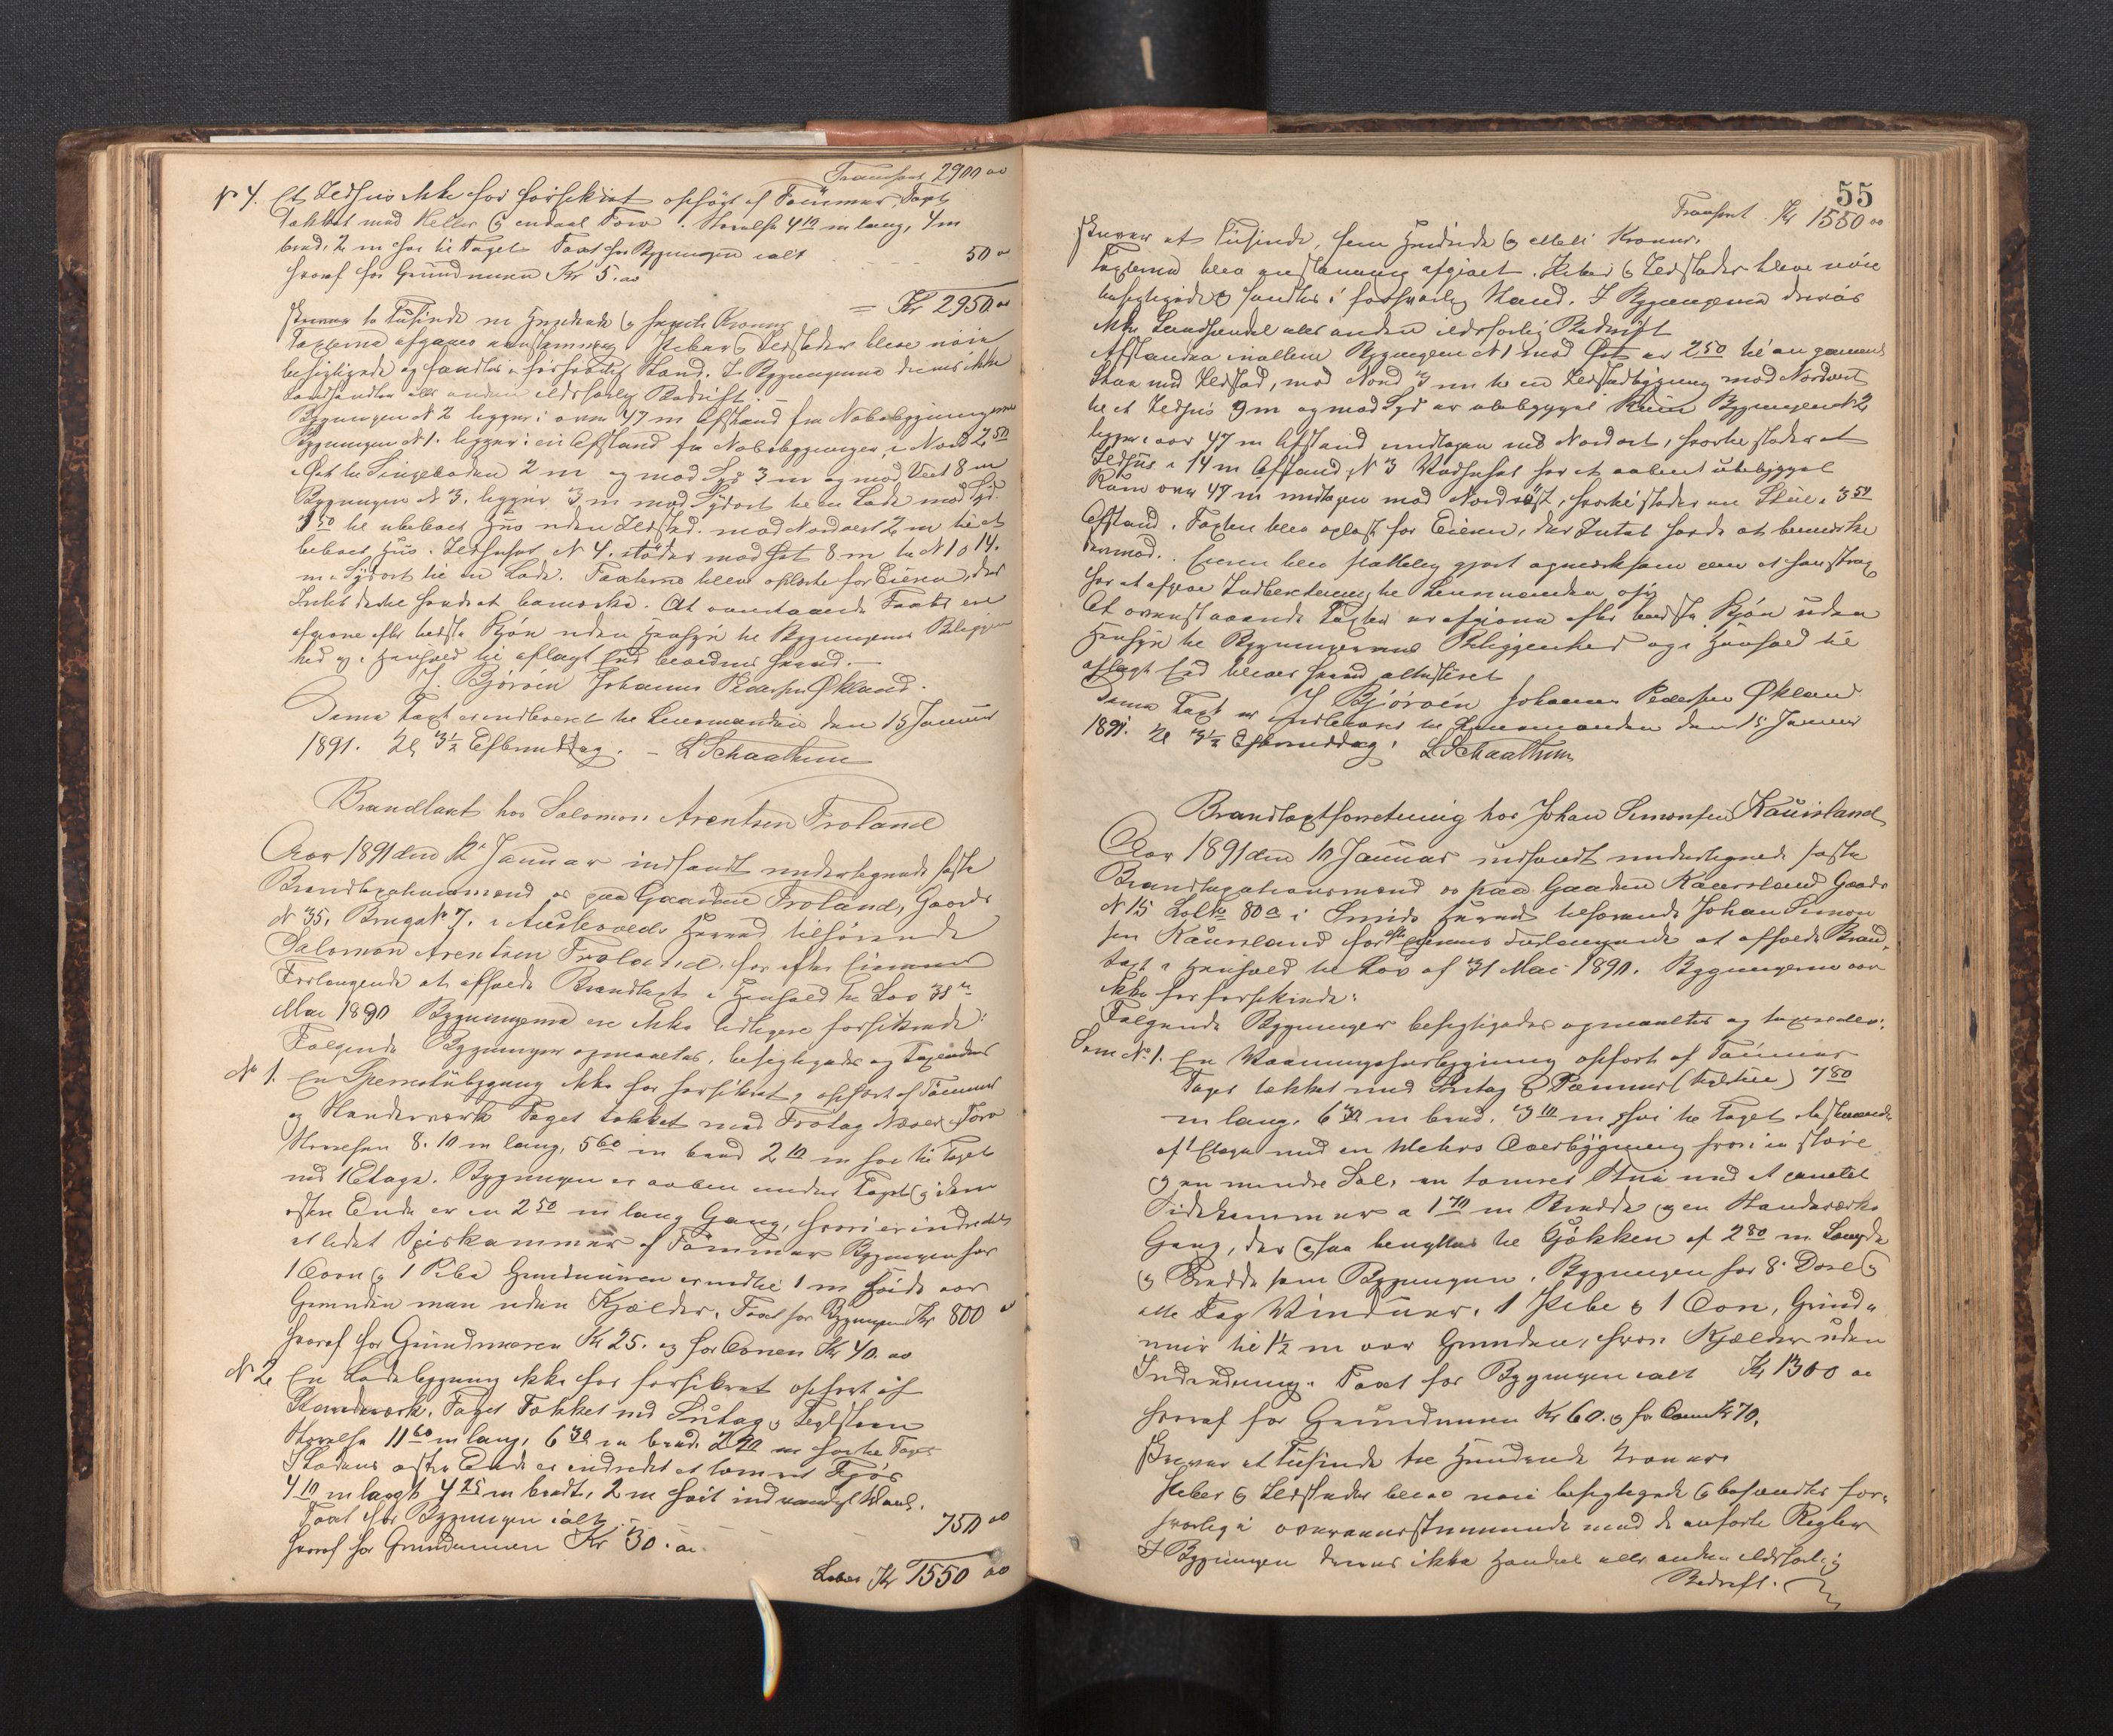 Transport 2900 00
No 4. Et Ildhus ikke før forsikret opført af Tømmer, Taget
takket med Heller og endeel Torv. Størrelse 4 10 m lang, 4 m
bred, 2 m høi til Taget Taxt for Bygningen ialt 50 00
hvoraf for Grundmuren Kr 5. 00
= Kr 2950 00
skriver to Tusinde ni Hundrede og femti Kroner
Taxterne afgaves eenstemmig. Piber og Ildsteder bleve nøie
besigtigede og fandtes i forsvarlig Stand. I Bygningerne drives ikke
Landhandlen eller anden ildsfarlig Bedrift. –
Bygningen N 2 ligger i over 47 m Afstand fra Nabobygningerne
Bygningen N 1. ligger i en Afstand fra Nabobygningen, i Nord 2 50
i Øst til Singeboden 2 m og mod Syd 3 m og mod Vest 8 m
Bygningen N 3. ligger 3 m mod Sydost til en Lade mod Syd
3 50 til ubeboet Hus uden Ildsted. mod Nordvest 2 m til et
beboet Hus. Ildhuset N 4. støder mod Øst 8 m til N 1 o 14.
m i Sydost til en Lade. Taxterne bleve oplæste for Eieren, der
Intet dertil havde at bemærke. At ovenstaaende Taxter ere
afgivne efter bedste Skjøn uden Hensyn til Bygningernes Beliggen
hed og i Henhold til aflagt Eed bevidnes herved. —
J. Bjørøen Johannes Pedersen Økland.
Denne Taxt er indleveret til Lensmanden den 15 Januar
1891. Kl 3 ½ Eftermiddag. – L Schaathun
Brandtaxt hos Salomon Arentsen Troland
Aar 1891 den 12 Januar indfandt undertegnede faste
Brandtaxationsmænd os paa Gaarden Troland, Gaards
N 35, Brugs No 7. i Austevolds Herred tilhørende
Salomon Arentsen Troland. for efter Eierens
Forlangende at afholde Brandtaxt i Henhold til Lov 31 te
Mai 1890 Bygningerne ere ikke tidligere forsikrede:
Følgende Bygninger opmaaltes, besigtigedes og taxeredes
No 1. En Sperrstubygning ikke før forsikret, opført af Tømmer
og Standerværk Taget takket med Trotag Næver og Torv
Størrelsen 8. 10 m lang, 5 60 m bred 2 10 m høi til Taget
med 1 Etage. Bygningen er aaben under Taget og i den
østre Ende er en 2 50 m lang Gang, hvori er indredet
et lidet Spiskammer af Tømmer Bygningen har
1 Ovn og 1 Pibe Grundmuren er indtil 1 m Høide over
Grunden men uden Kjælder. Taxt for Bygningen Kr 800 "
hvoraf for Grundmuren Kr 25. og for Ovnen Kr 40. 00
N 2 En Ladebygning ikke før forsikret opført af
Standværk. Taget Takket med Sutag og Teglsteen
Størrelse 11 60 m lang, 6 30 m bred. 2 90 m høi til Taget
I Ladens østre Ende er indredet et tømret Fjøs
4 10 m langt 4 25 m bredt, 2 m høit indvendigt Maal.
Taxt for Bygningen ialt – – – – 750 00
hvoraf for Grundmuren Kr 30. 00
Latus Kr 1550 00
55
Transport. Kr 1550 00
skriver et Tusinde, fem Hundrede og otteti Kroner.
Taxterne blev eenstemmig afgivet. Piber og Ildsteder bleve nøie
besigtigede og fandtes i forsvarlig Stand. I Bygningerne drives
ikke Landhandel eller anden ildsfarlig Bedrift
Afstanden imellem Bygningen N 1 mod Øst er 2 50 til en gammel
Stue med Ildsted, mod Nord 3 m til en Ildstedbygning mod Nordvest
til et Ildhus 9 m og mod Syd er ubebygget Rum Bygningen N 2
ligger i over 47 m Afstand undtagen mod Nordost, hvortil støder et
Ildhus i 14 m Afstand, N 3 har et aabent ubebygget
Rum over 47 m undtagen mod Nordøst, hvortil støder en Stue i 3 50
Afstand. Taxten blev oplæst for Eieren, der Intet havde at bemærke
derimod. Eieren blev gjort opmærksom om at han strax
har at afgive Indberetning til Lensmanden
At ovenstaaende Taxter er afgivne efter bedste Skjøn uden
Hensyn til Bygningernes Beliggenhed og i Henhold til
aflagt Eed bliver herved attesteret
J Bjørøen Johannes Pedersen Økland
Denne Taxt er indleveret til Lensmanden den 15 Januar
1891. Kl 3 ½ Eftermiddag. L Schaathun
Brandtaxtforretning hos Johan Simonsen Kaursland
Aar 1891 den 10 Januar indfandt undertegnede faste
Brandtaxationsmænd os paa Gaarden Kaursland Gaards
N 15 Løbe No 80 a i Sunds Herred tilhørende Johan Simon
sen Kaursland for efter Eierens Forlangende at afholde Brand
taxt i Henhold til Lov af 31 Mai 1890. Bygningerne var
ikke før forsikrede:
Følgende Bygninger besigtigedes opmaaltes og taxeredes:
Som No 1. En Vaaningshusbygning opført af Tømmer
Taget takket med Sutag og Panner 7 80
m lang, 6 30 m bred. 3 10 m høi til Taget bestaaende
af 1 Etage med en Meters Overbygning hvori en større
og en mindre Sal, en tømret Stue med et panelet
Sidekammer a 1 70 m Bredde og en Standværks
Gang, der ogsaa benyttes til Kjøkken af 2 80 m Længde
og Bredde som Bygningen. Bygningen har 8 Døre og
otte Fag Vinduer, 1 Pibe og 1 Ovn, Grund=
mur til 1½ m over Grunden, hvori Kjælder uden
Indredning. Taxt for Bygningen ialt Kr 1300 00
hvoraf for Grundmuren Kr 60. og for Ovnen Kr 70,
skriver et Tusinde tre Hundrede Kroner
Piber og Ildsteder blev nøie besigtigede og befandtes for=
svarlig i overensstemmende med de anførte Regler
I Bygningen drives ikke Handel eller anden ildsfarlig
Bedrift.